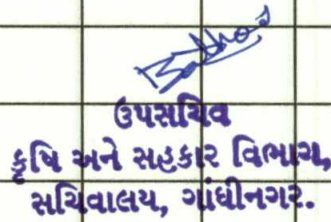 ઉપસચિવ
કૃષિ અને સહકાર વિભાગ,
સચિવાલય, ગાંધીનગર.